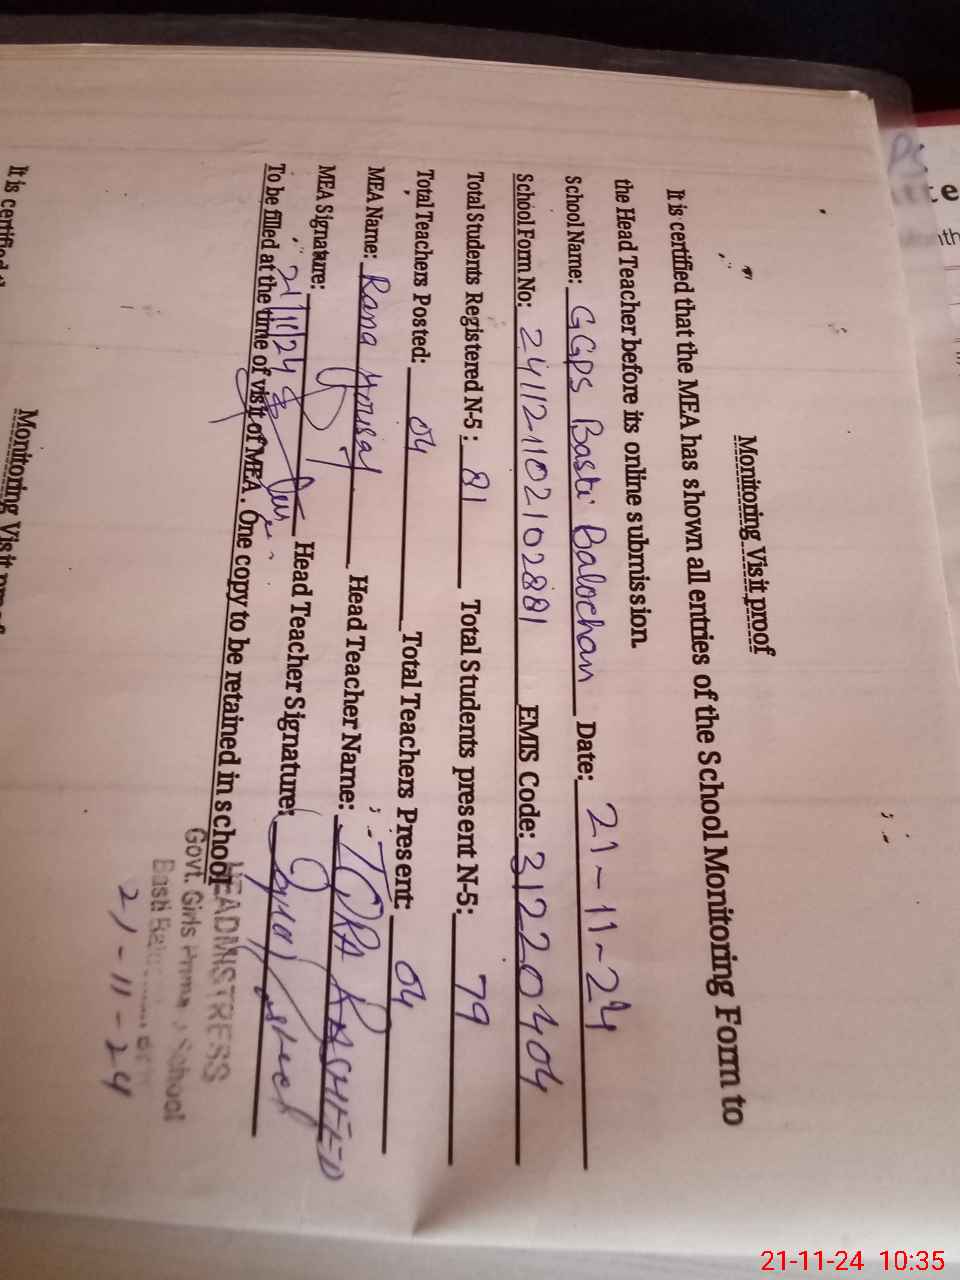 Monitoring Visit proof
It is certified that the MEA has shown all entries of the School Monitoring Form to
the Head Teacher before its online submission.
School Name: GGPS Basti Balochan Date: 21-11-24
School Form No: 241121102102881 EMIS Code: 31220404
Total Students Registered N-5: 81 Total Students present N-5: 79
Total Teachers Posted: 04 Total Teachers Present: 04
MEA Name: Rana Yousaf Head Teacher Name: IQRA RASHEED
MEA Signature: Head Teacher Signature:
21/11/24
To be filled at the time of visit of MEA. One copy to be retained in school
HEADMISTRESS
Govt. Girls School
Basti
21-11-24
Monitoring Visit proof
It is certified
21-11-24 10:35